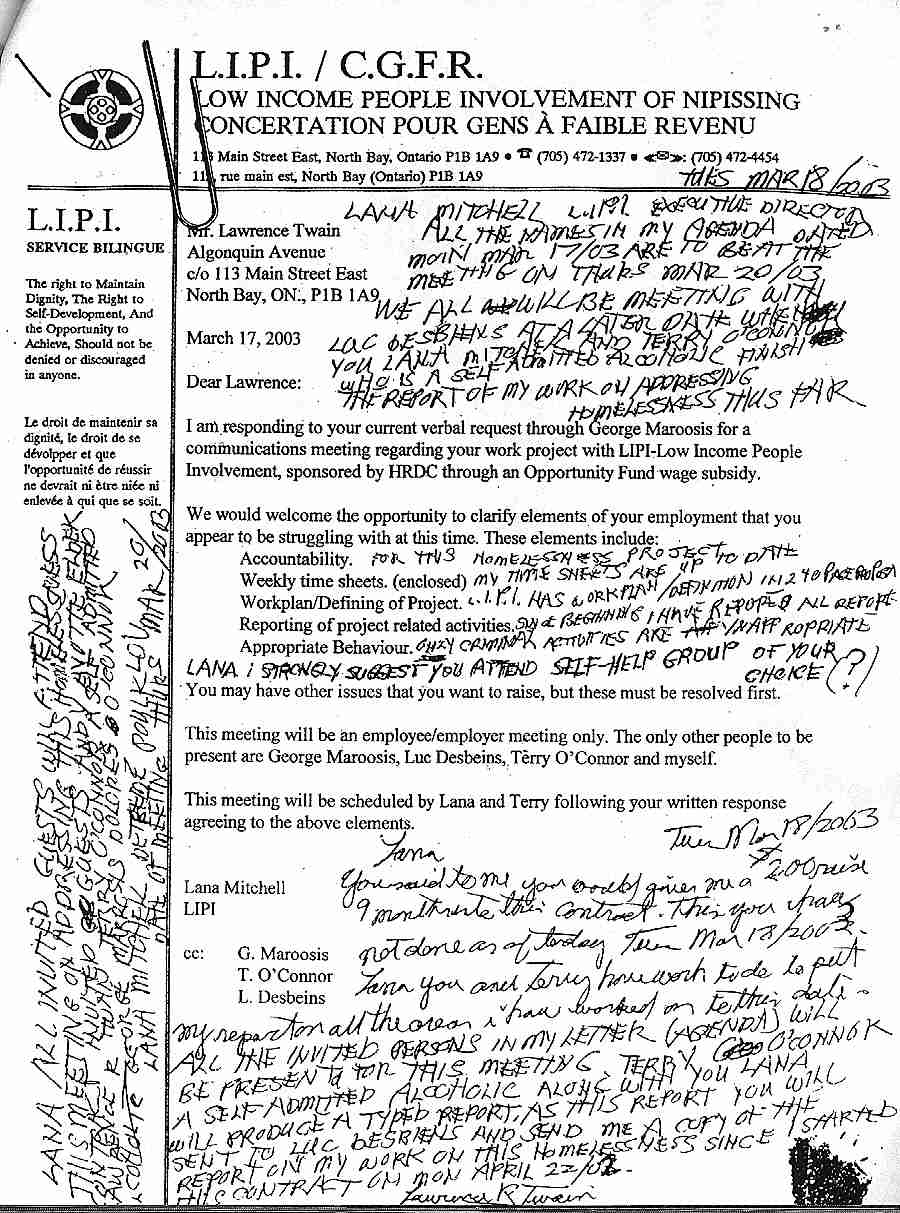 L.I.P.I. / C.G.F.R.
LOW INCOME PEOPLE INVOLVEMENT OF NIPISSING
CONCERTATION POUR GENS À FAIBLE REVENU
Main Street East, North Bay, Ontario P1B 1A9 • ☎ (705) 472-1337 • (705) 472-4454
rue main est, North Bay (Ontario) P1B 1A9
TUES MAR 18/2003
L.I.P.I.
SERVICE BILINGUE
The right to Maintain
Dignity, The Right to
Self-Development, And
the Opportunity to
Achieve, Should not be
denied or discouraged
in anyone.
Le droit de maintenir sa
dignité, le droit de se
dévolpper et que
l'opportunité de réussir
ne devrait ni être niée ni
enlevée à qui que se soit.
LANA MITCHELL L.I.P.I. EXECUTIVE DIRECTOR
ALL THE NAMES IN MY AGENDA DATED
MON MAR 17/03 ARE TO BE AT THE
MEETING ON THURS MAR 20/03
WE ALL WILL BE MEETING WITH
LUC DESBIENS AT A LATER DATE WHEN
YOU LANA MITCHELL AND TERRY O'CONNOR
WHO IS A SELF ADMITTED ALCOHOLIC FINISH
THE REPORT OF MY WORK ON ADDRESSING
HOMELESSNESS THUS FAR
Mr. Lawrence Twain
Algonquin Avenue
c/o 113 Main Street East
North Bay, ON., P1B 1A9
March 17, 2003
Dear Lawrence:
I am responding to your current verbal request through George Maroosis for a
communications meeting regarding your work project with LIPI-Low Income People
Involvement, sponsored by HRDC through an Opportunity Fund wage subsidy.
We would welcome the opportunity to clarify elements of your employment that you
appear to be struggling with at this time. These elements include:
Accountability. FOR THIS HOMELESSNESS PROJECT TO DATE
Weekly time sheets. (enclosed) MY TIME SHEETS ARE UP
Workplan/Defining of Project. L.I.P.I. HAS A WORKPLAN/DEFINITION IN 240 PAGE
Reporting of project related activities. BEGINNING I HAVE REPORTED ALL REPORT
Appropriate Behaviour. ONLY CRIMINAL ACTIVITIES ARE INAPPROPRIATE
LANA I STRONGLY SUGGEST YOU ATTEND SELF-HELP GROUP OF YOUR
CHOICE (?)
You may have other issues that you want to raise, but these must be resolved first.
This meeting will be an employee/employer meeting only. The only other people to be
present are George Maroosis, Luc Desbeins, Terry O'Connor and myself.
This meeting will be scheduled by Lana and Terry following your written response
agreeing to the above elements.
Tues Mar 18/2003
Lana Mitchell
LIPI
cc: G. Maroosis
T. O'Connor
L. Desbeins
Lana
You said to me you would give me a 2.00 raise
9 months into this contract. This you have
not done as of today Tues Mar 18/2003.
Lana you and Terry have work to do to put
my report on all the areas i have worked on to this date.
ALL THE INVITED PERSONS IN MY LETTER (AGENDA) WILL
BE PRESENT FOR THIS MEETING. TERRY O'CONNOR
A SELF-ADMITTED ALCOHOLIC ALONG WITH YOU LANA
WILL PRODUCE A TYPED REPORT. AS THIS REPORT YOU WILL
SENT TO LUC DESBIENS AND SEND ME A COPY OF THE
REPORT ON MY WORK ON THIS HOMELESSNESS SINCE I STARTED
THIS CONTRACT ON MON APRIL 22/02.
Lawrence R Twain
LANA ALL INVITED GUESTS WILL ATTEND
THIS MEETING ON ADDRESSING THIS HOMELESSNESS
LANA MITCHELL
DATE OF MEETING THURS MAR 20/2003